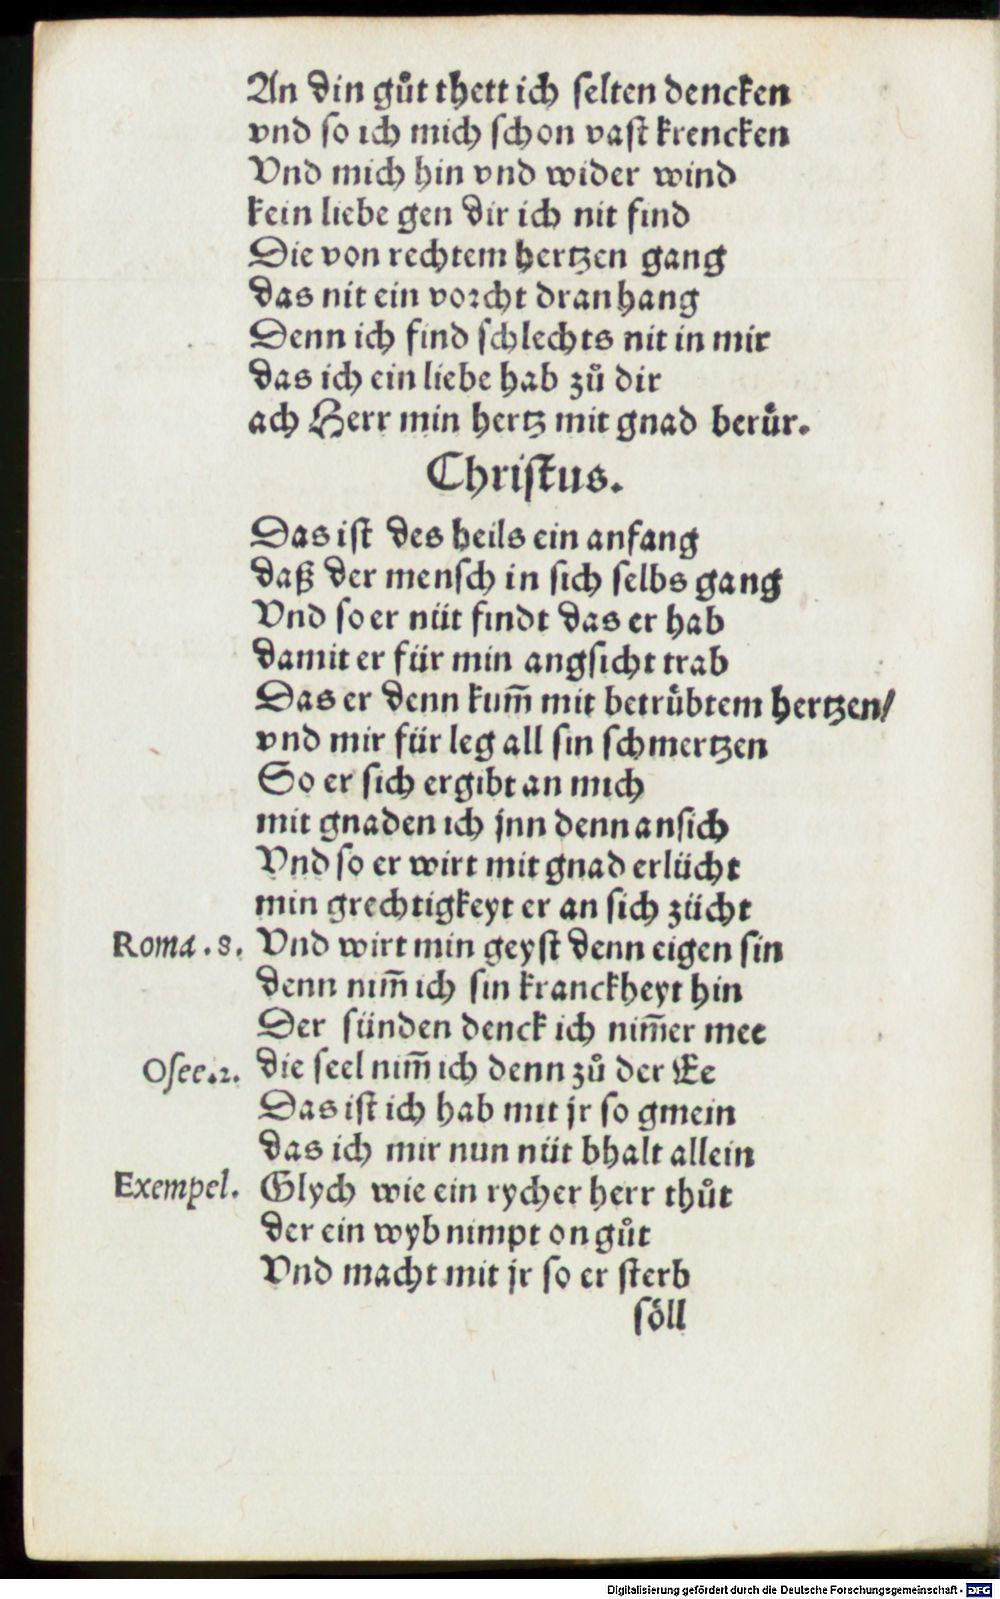 An din gůt thett ich selten dencken
vnd so ich mich schon vast krencken
Vnd mich hin vnd wider wind
kein liebe gen dir ich nit find
Die von rechtem hertzen gang
das nit ein vorcht dran hang
Denn ich find schlechts nit in mir
das ich ein liebe hab zů dir
ach Herr min hertz mit gnad berůr.
Christus.
Das ist des heils ein anfang
daß der mensch in sich selbs gang
Vnd so er nüt findt das er hab
damit er für min angsicht trab
Das er denn kum̄ mit betrůbtem hertzen/
vnd mir für leg all sin schmertzen
So er sich ergibt an mich
mit gnaden ich jnn denn ansich
Vnd so er wirt mit gnad erlücht
min grechtigkeyt er an sich zücht
Roma . 8. Vnd wirt min geyst denn eigen sin
denn nim̄ ich sin kranckheyt hin
Der sünden denck ich nim̄er mee
Osee.2. die seel nim̄ ich denn zů der Ee
Das ist ich hab mit jr so gmein
das ich mir nun nüt bhalt allein
Exempel. Glych wie ein rycher herr thůt
der ein wyb nimpt on gůt
Vnd macht mit jr so er sterb
söll
Digitalisierung gefördert durch die Deutsche Forschungsgemeinschaft - DFG